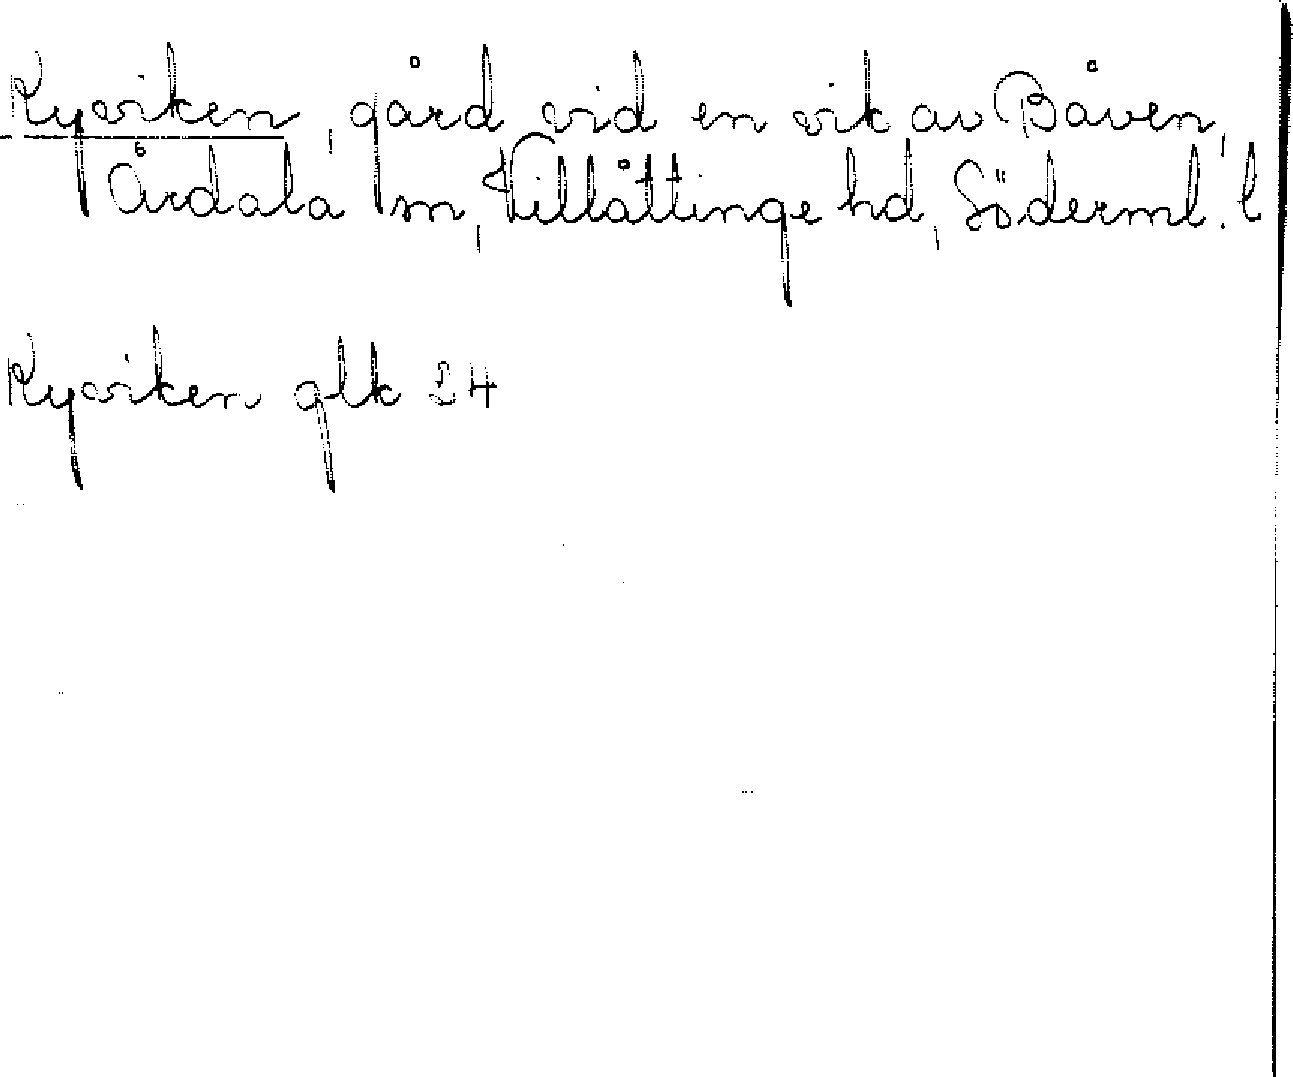 Kyviken, gård vid en vik av Båven,
Årdala sn, Villåttinge hd, Söderml. l
Kyviken glk 24